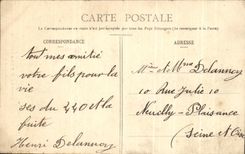 CARTE POSTALE
La Correspondance au recto n'est pas acceptée par tous les Pays Étrangers (Se renseigner à la Poste)
CORRESPONDANCE
ADRESSE
tout mes amitié
votre fils pour la
vie
ses du 440 et la
fuite
Henri Delannoy
Mme Delannoy
10 Rue Jules 10
Neuilly-Plaisance
Seine